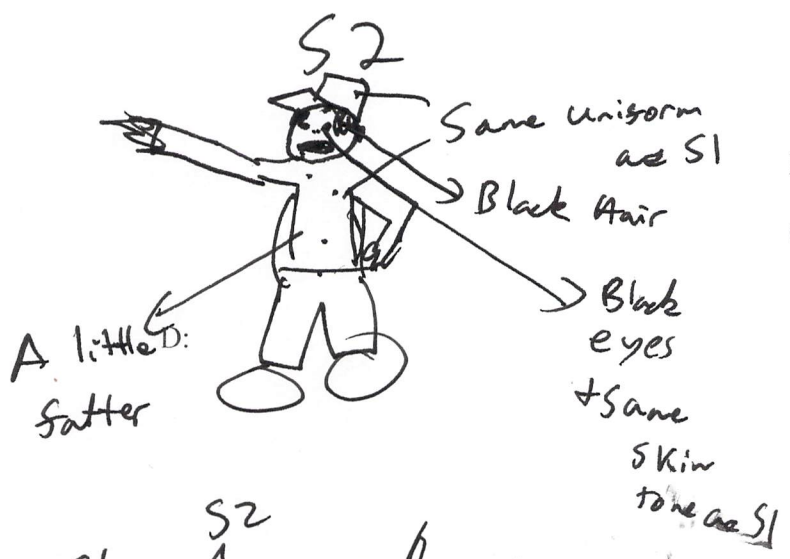 S2
Same uniform
as S1
Black Hair
Black
eyes
+ Same
skin
tone as S1
A little D:
fatter
S2